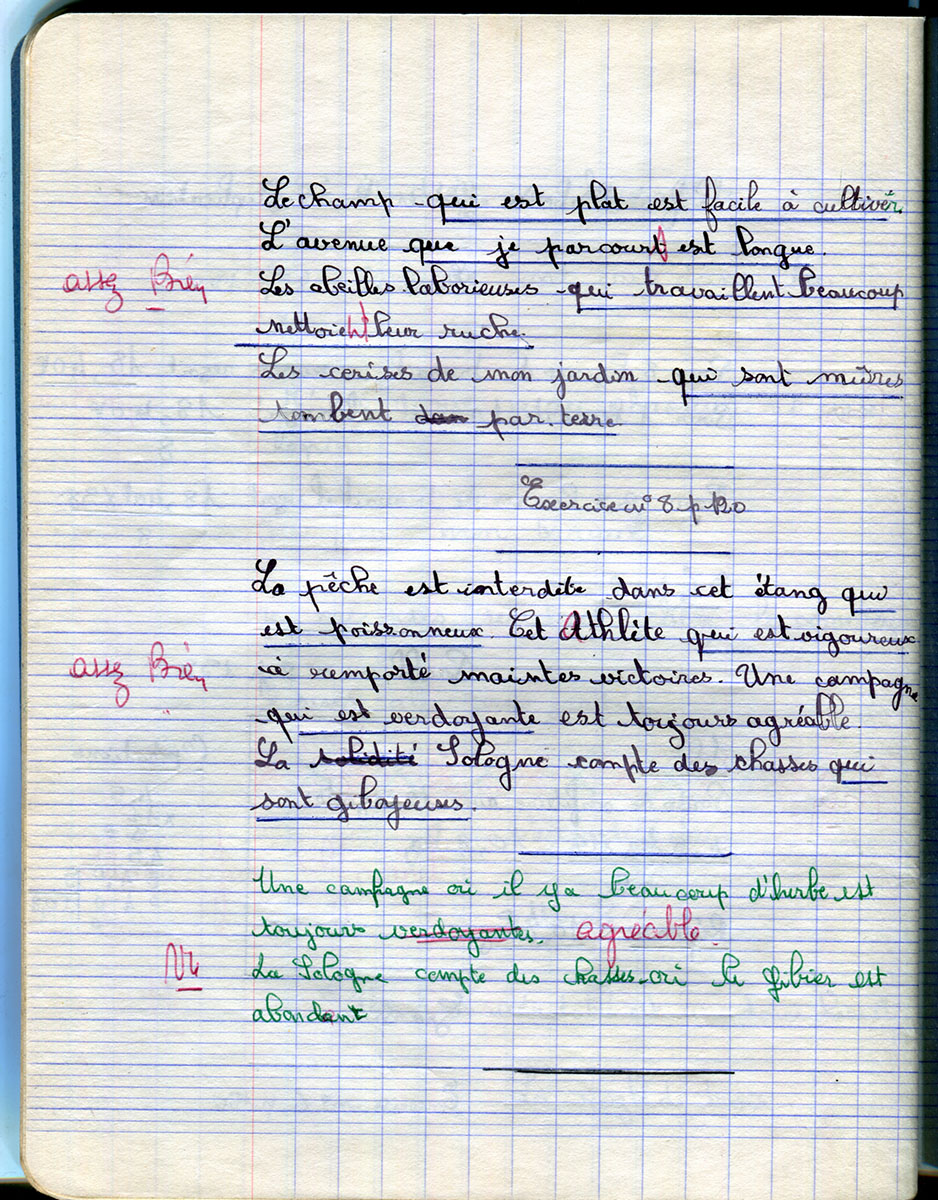 Le champ qui est plat est facile à cultiver.
L'avenue que je parcours est longue.
assez Bien
Les abeilles laborieuses qui travaillent beaucoup
nettoient leur ruche.
Les cerises de mon jardin qui sont mûres
tombent dans par terre
Exercice n° 8 p 120
La pêche est interdite dans cet étang qui
est poissonneux. Cet Athlète qui est vigoureux
assez Bien
à remporté maintes victoires. Une campagne
qui est verdoyante est toujours agréable.
La solidité Sologne compte des chasses qui
sont giboyeuses.
Une campagne où il y a beaucoup d'herbe est
toujours verdoyantes. agréable.
Vu
La Sologne compte des chasses où le gibier est
abondant